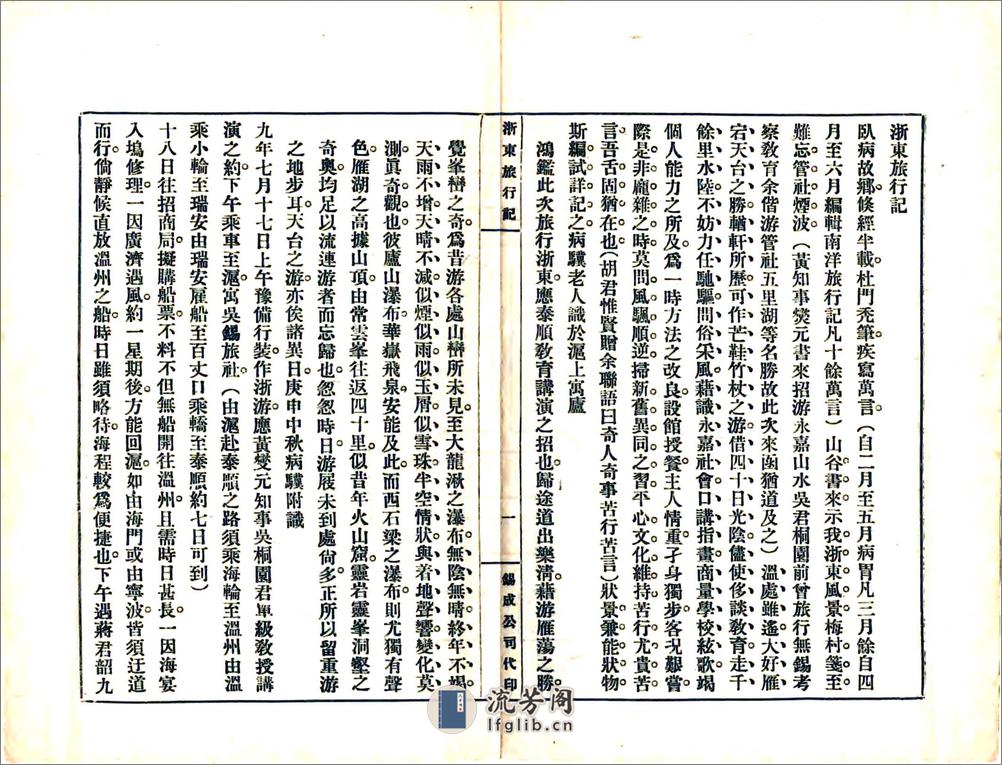 浙東旅行記
臥病故鄉倏經半載杜門禿筆疾寫萬言（自二月至五月病胃凡三月餘自四
月至六月編輯南洋旅行記凡十餘萬言）山谷書來示我浙東風景梅村箋至
難忘管社煙波（黃知事燮元書來招游永嘉山水吳君桐園前曾旅行無錫考
察敎育余偕游管社五里湖等名勝故此次來函猶道及之）溫處雖遙大好雁
宕天台之勝輶軒所歷可作芒鞋竹杖之游借四十日光陰儘使侈談敎育走千
餘里水陸不妨力任馳驅問俗采風藉識永嘉社會口講指畫商量學校絃歌竭
個人能力之所及爲一時方法之改良設館授餐主人情重孑身獨步客况艱嘗
際是非龐雜之時莫問風颿順逆掃新舊異同之習平心文化維持苦行尤貴苦
言吾舌固猶在也（胡君惟賢贈余聯語曰奇人奇事苦行苦言）狀景兼能狀物
斯編試詳記之病驥老人識於滬上寓廬
鴻鑑此次旅行浙東應泰順敎育講演之招也歸途道出樂淸藉游雁蕩之勝
浙東旅行記
一
錫成公司代印
覺峯巒之奇爲昔游各處山巒所未見至大龍湫之瀑布無陰無晴終年不竭
天雨不增天晴不減似煙似雨似玉屑似雪珠半空情狀與着地聲響變化莫
測眞奇觀也彼廬山瀑布華嶽飛泉安能及此而西石梁之瀑布則尤獨有聲
色雁湖之高據山頂由常雲峯往返四十里似昔年火山窟靈岩靈峯洞壑之
奇奧均足以流連游者而忘歸也怱怱時日游屐未到處尙多正所以留重游
之地步耳天台之游亦俟諸異日庚申中秋病驥附識
九年七月十七日上午豫備行裝作浙游應黃燮元知事吳桐園君單級敎授講
演之約下午乘車至滬寓吳錫旅社（由滬赴泰順之路須乘海輪至溫州由溫
乘小輪至瑞安由瑞安雇船至百丈口乘轎至泰順約七日可到）
十八日往招商局擬購船票不料不但無船開往溫州且需時日甚長一因海宴
入塢修理一因廣濟遇風約一星期後方能回滬如由海門或由寧波皆須迂道
而行倘靜候直放溫州之船時日雖須略待海程較爲便捷也下午遇蔣君韶九
流芳阁
lfglib.cn